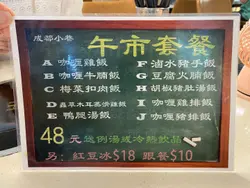 成都小巷 午市套餐
A 咖喱雞飯
B 咖喱牛腩飯
C 梅菜扣肉飯
D 蟲草木耳蒸滑雞飯
E 鴨腿湯飯
F 滷水豬手飯
G 豆腐火腩飯
H 胡椒豬肚湯飯
I 咖喱雞排飯
J 咖喱豬排飯
48元 送例湯或冷熱飲品
另:紅豆冰$18 跟餐$10